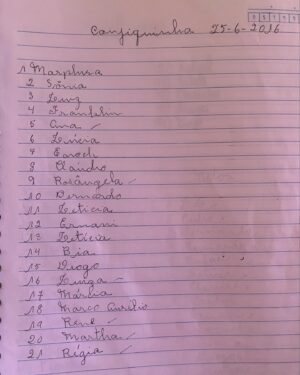 Canjiquinha 25-6-2016
1 Marphisa
2 Sônia
3 Luiz
4 Franklin
5 Ana ✓
6 Lúcia
7 Enoch
8 Claudio
9 Rosângela ✓
10 Bernardo
11 Letícia
12 Ernani
13 Letícia
14 Bia
15 Diogo
16 Luiza –
17 Márcia
18 Marco Aurélio
19 Rene ✓
20 Martha ✓
21 Régia ✓